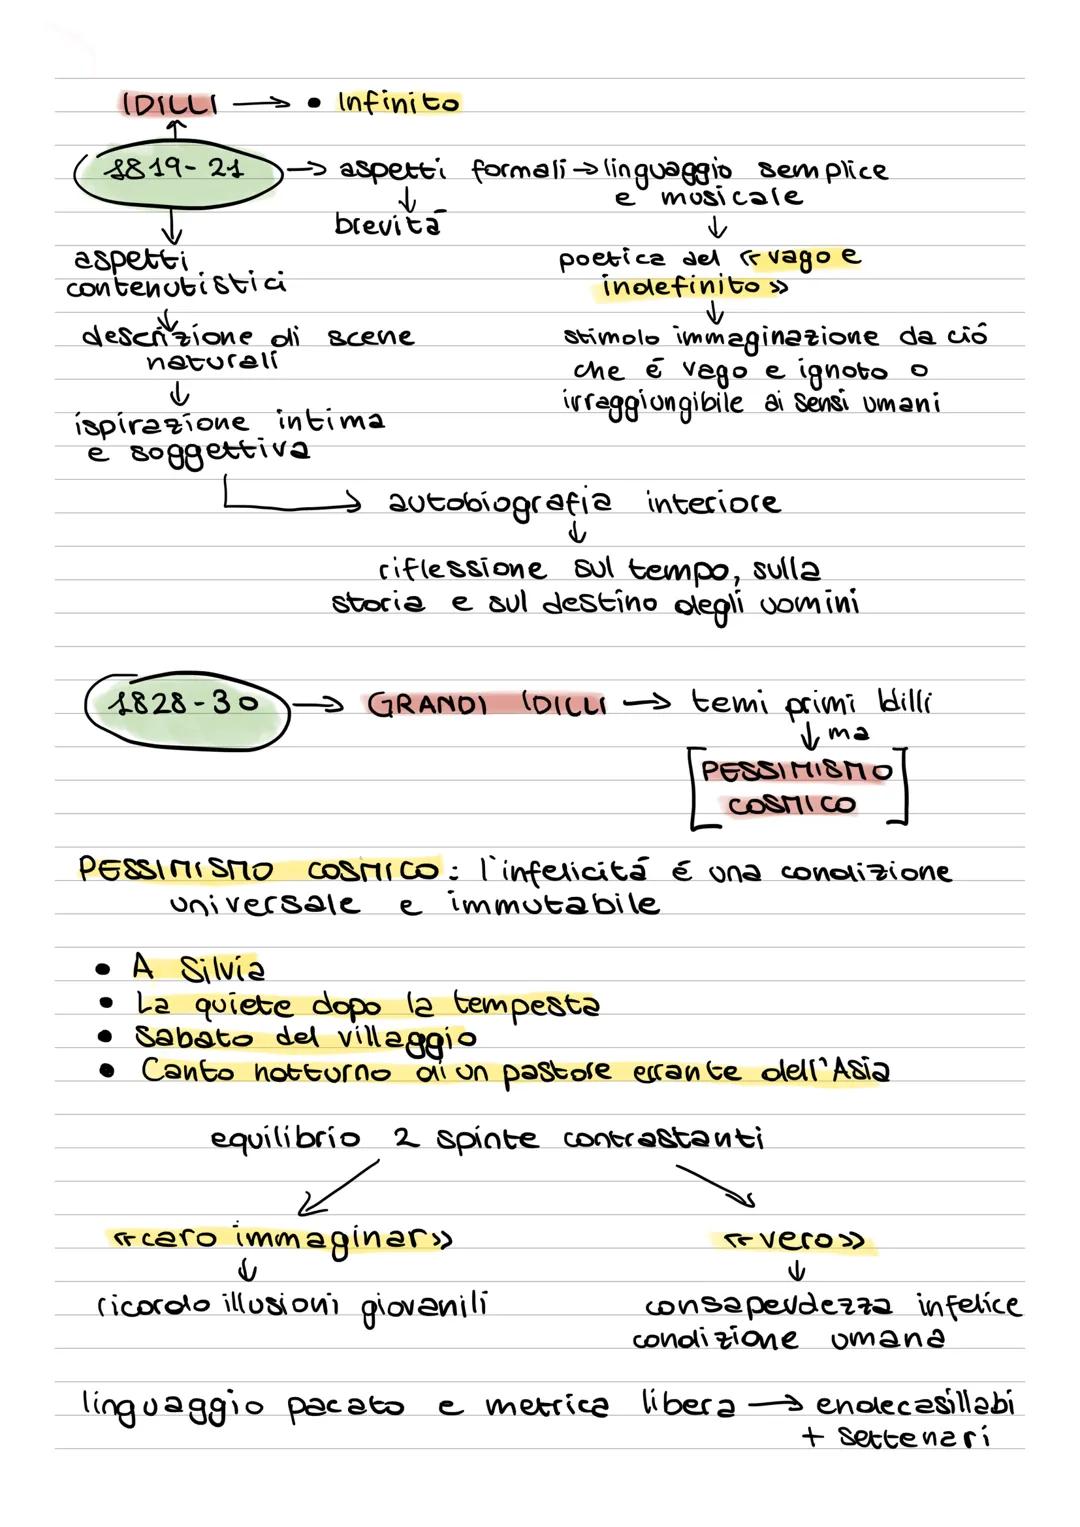 IDILLI → • Infinito
1819-21 → aspetti formali → linguaggio semplice
e musicale
brevitá
aspetti
contenutistici
poetica del «vago e
indefinito»
descrizione di scene
naturali
stimolo immaginazione da ció
che é vago e ignoto o
irraggiungibile ai sensi umani
ispirazione intima
e soggettiva
autobiografia interiore
riflessione sul tempo, sulla
storia e sul destino degli uomini
1828-30 → GRANDI IDILLI → temi primi Idilli
ma
PESSIMISMO
COSMICO
PESSIMISMO COSMICO: l'infelicitá é una condizione
universale e immutabile
• A Silvia
• La quiete dopo la tempesta
• Sabato del villaggio
• Canto notturno di un pastore errante dell'Asia
equilibrio 2 spinte contrastanti
«caro immaginar»
«vero»
ricordo illusioni giovanili
consapevolezza infelice
condizione umana
linguaggio pacato e metrica libera → endecasillabi
+ settenari